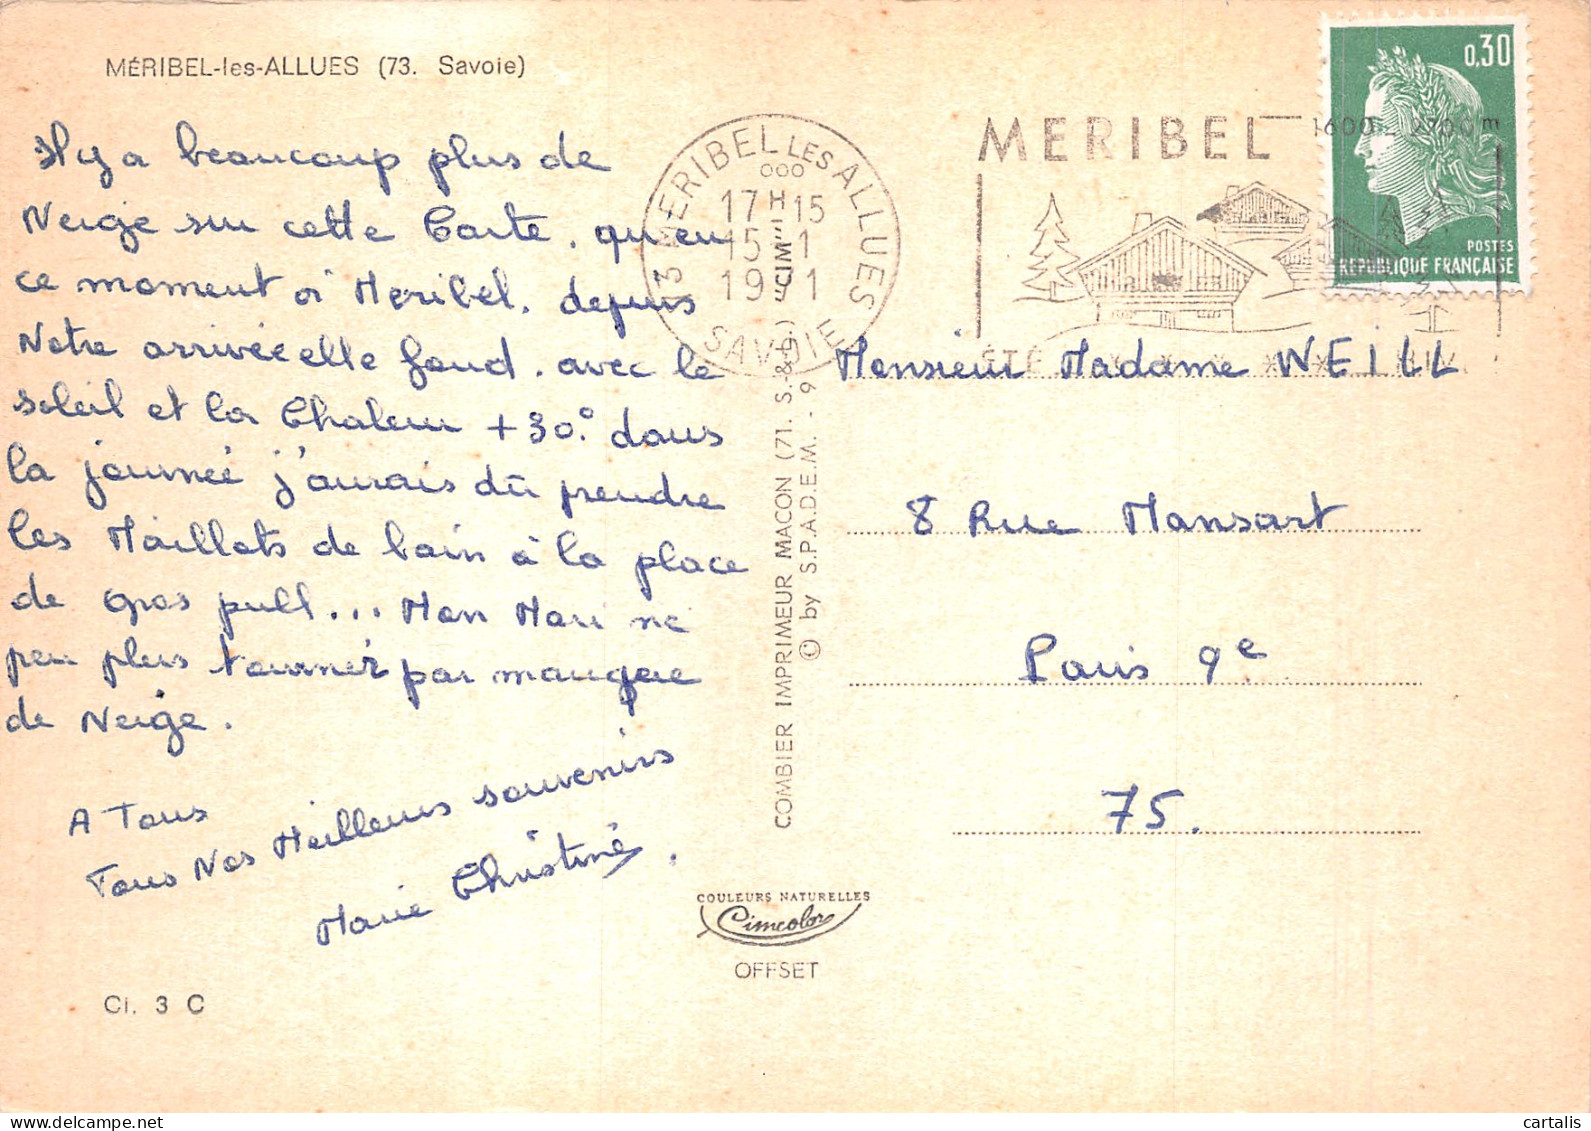 MÉRIBEL-les-ALLUES (73. Savoie)
Il y a beaucoup plus de
Neige sur cette Carte, qu'en
ce moment à Meribel, depuis
Notre arrivée elle fond, avec le
soleil et la Chaleur +30.° dans
la journée j'aurais dû prendre
les Maillots de bain à la place
de gros pull... Mon Mari ne
peu plus tourner par manque
de Neige.
A Tous
Tous Nos Meilleurs souvenirs
Marie Christine.
Cl. 3 C
73 MERIBEL LES ALLUES
000
17 H 15
15-1
1971
SAVOIE
MERIBEL 1600 2700 m
ÉTÉ
0,30
POSTES
REPUBLIQUE FRANÇAISE
COMBIER IMPRIMEUR MACON (71. S.-&-L.) "CIM"
© by S.P.A.D.E.M. - 9
Monsieur Madame WEILL
8 Rue Mansart
Paris 9e
75.
COULEURS NATURELLES
Cimcolor
OFFSET
delcampe.net
cartalis